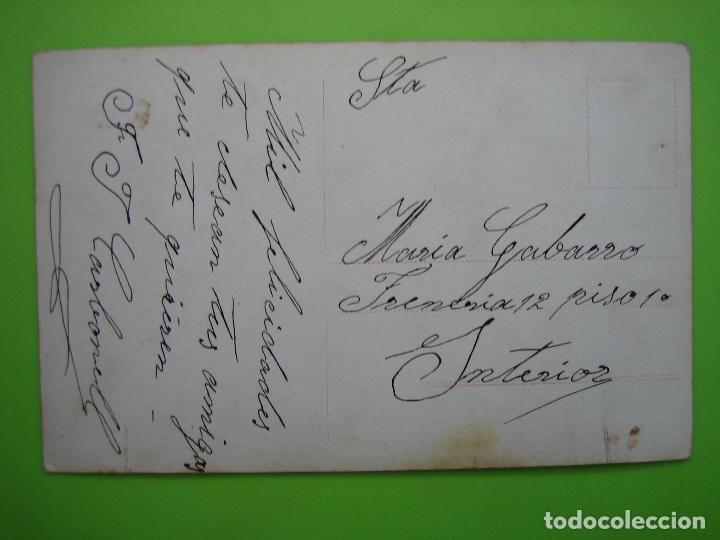 Mil felicidades
te desean tus amigas
que te quieren -
F. F Carbonell
Sta
Maria Gabarro
Freneria 12 piso 1º
Interior
todocoleccion
todocoleccion.net